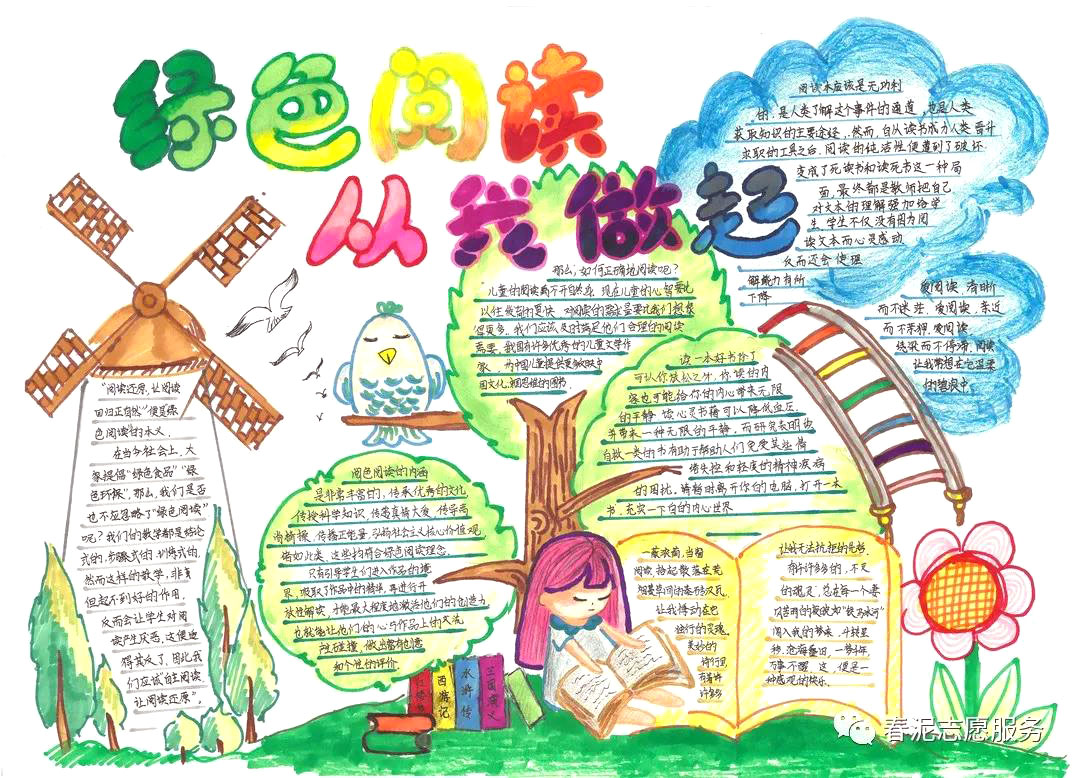 绿色阅读
从我做起
阅读本应该是无功利
的,是人类了解这个事件的通道,也是人类
获取知识的主要途经,然而,自从读书成为人类晋升
求职的工具之后,阅读的纯洁性便遭到了破坏
变成了死读书和读死书这一种局
面,最终都是教师把自己
对文本的理解强加给学
生,学生不仅没有因为阅
读文本而心灵感动
反而还会使理
解能力有所
下降
爱阅读,清晰
而不迷茫,爱阅读,亲近
而不季稠,爱阅读
续染而不停滞,阅读
让我冥想在它温柔
的碧波中。
那么,如何正确地阅读呢?
儿童的阅读离不开自然系,现在儿童的心智要比
以往发育的更快,对阅读的需求量要比我们想象
得更多。我们应该及时满足他们合理的阅读
需要,我国有许多优秀的儿童文学作
家,为中国儿童提供更够映中
国文化,领思维的图书。
读一本好书你了
可以从你放松之外,你读的内
容也可能给你的内心带来无限
的平静,读心灵书籍可以降低血压,
并带来一种无限的平静,而研究表明读
自救一类的书有助于帮助人们免受某些情
绪失控和轻度的精神疾病
的困扰。请暂时离开你的电脑,打开一本
书,充实一下自的内心世界
"阅读还原,让阅读
回归正自然"便是绿
色阅读"的本义。
在当今社会上,大
家提倡"绿色食品""绿
色环报",那么,我们是否
也不应忽略了"绿色阅读"
呢?我们的教学都是结论
式的,步骤式的,训练式的,
然而这样的教学,非真
但起不到好的作用,
反而会让学生对阅
读产生厌恶,这便适
得其反了,因此我
们应试"自主阅读
让阅读还原"。
阅色阅读的内涵
是非常丰富的,传承优秀的文化
传授科学知识,传递真情大爱,传导高
尚情操,传播正能量,弘扬社会主义核心价值观
诸如此类,这些均符合绿色阅读理念。
只有引导学生们进入作品的意
界,吸取了作品中的精华,再进行开
放性解读,才能最大程度地激活他们的创造力
也就能让他们的心与作品上的天流
产生碰撞,做出富有创意
和个性的评价
一蓑衣简,当留
阅读,拾起散落在荒
让我悸动在也
独行的灵魂。
美妙的
诗行里
有着许
许多多
让我无法抗拒的光彩,
有许许多多的,不灭
的魂灵,总在每一个春
闯入我的梦来,斗转星
移,沧海桑田,一梦千年
万事不醒,这,便是一
种感观的快乐。
红楼梦
西游记
水浒传
三国演义
春泥志愿服务